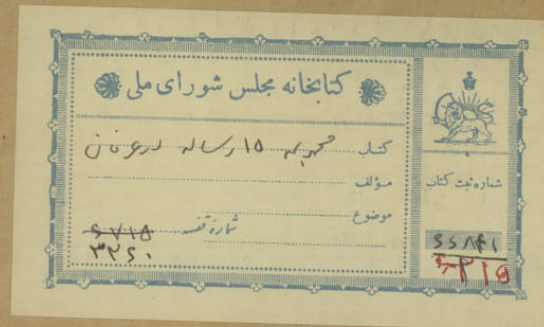 کتابخانه مجلس شورای ملی
کتاب مجموعه ۱۵ رساله در عرفان
مؤلف
موضوع
شماره قفسه
۳۲۶۰
شماره ثبت کتاب
۶۶۸۴۱